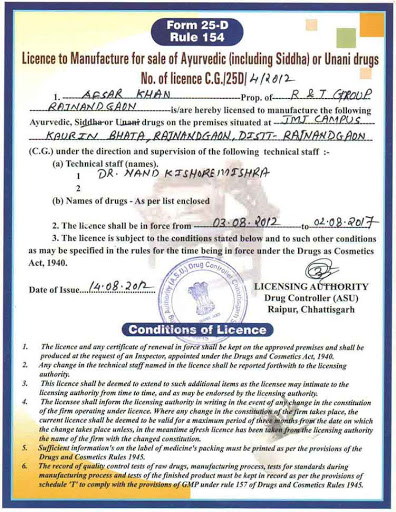 Form 25-D
Rule 154
Licence to Manufacture for sale of Ayurvedic (including Siddha) or Unani drugs
No. of licence C.G./25D/ 4/2012
1. AFSAR KHAN Prop. of R & T GROUP
RAJNANDGAON is/are hereby licensed to manufacture the following
Ayurvedic, Siddha or Unani drugs on the premises situated at JMJ CAMPUS
KAURIN BHATA, RAJNANDGAON, DISTT- RAJNANDGAON
(C.G.) under the direction and supervision of the following technical staff :-
(a) Technical staff (names).
1 DR. NAND KISHORE MISHRA
2
(b) Names of drugs - As per list enclosed
2. The licence shall be in force from 03-08-2012 to 02-08-2017
3. The licence is subject to the conditions stated below and to such other conditions
as may be specified in the rules for the time being in force under the Drugs as Cosmetics
Act, 1940.
Date of Issue 14-08-2012
LICENSING AUTHORITY
Drug Controller (ASU)
Raipur, Chhattisgarh
Conditions of Licence
1. The licence and any certificate of renewal in force shall be kept on the approved premises and shall be
produced at the request of an Inspector, appointed under the Drugs and Cosmetics Act, 1940.
2. Any change in the technical staff named in the licence shall be reported forthwith to the licensing
authority.
3. This licence shall be deemed to extend to such additional items as the licensee may intimate to the
licensing authority from time to time, and as may be endorsed by the licensing authority.
4. The licensee shall inform the licensing authority in writing in the event of any change in the constitution
of the firm operating under licence. Where any change in the constitution of the firm takes place, the
current licence shall be deemed to be valid for a maximum period of three months from the date on which
the change takes place unless, in the meantime afresh licence has been taken from the licensing authority
the name of the firm with the changed constitution.
5. Sufficient information's on the label of medicine's packing must be printed as per the provisions of the
Drugs and Cosmetics Rules 1945.
6. The record of quality control tests of raw drugs, manufacturing process, tests for standards during
manufacturing process and tests of the finished product must be kept in record as per the provisions of
schedule 'T' to comply with the provisions of GMP under rule 157 of Drugs and Cosmetics Rules 1945.